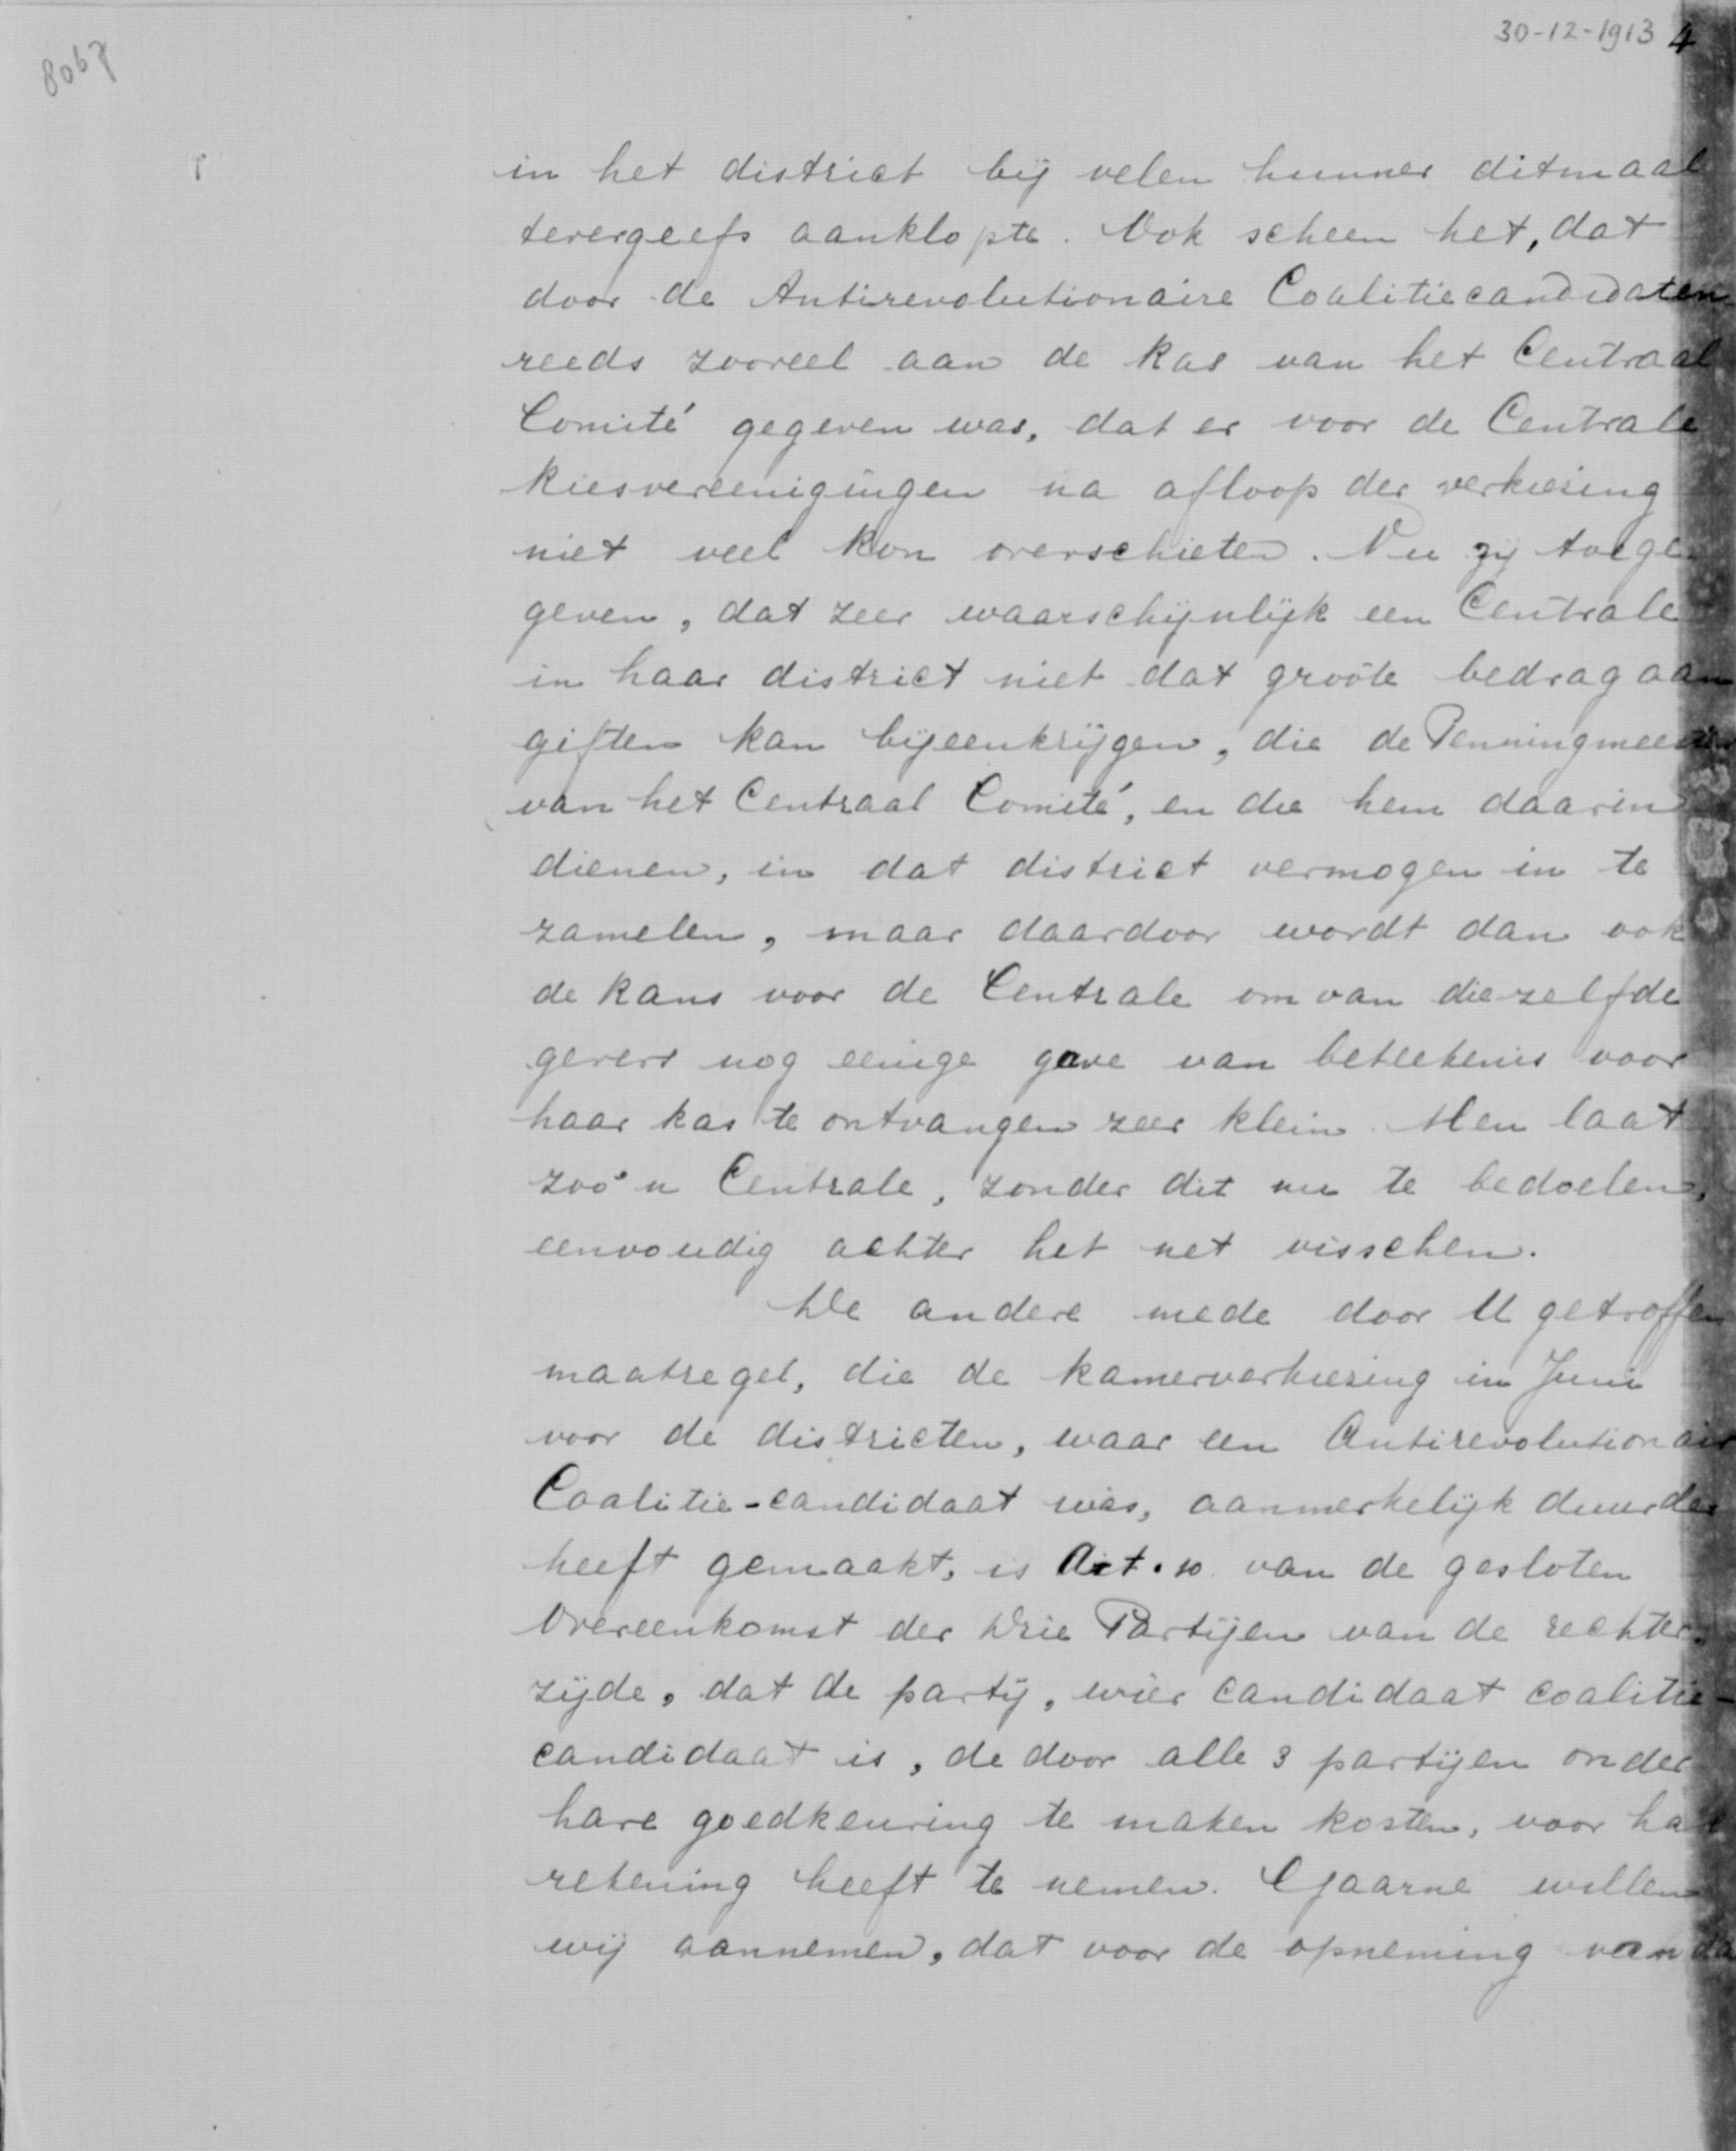 30-12-1913 4
8067
in het district bij velen hunner ditmaal
tevergeefs aanklopte. Ook scheen het, dat
door de Antirevolutionaire Coalitiecandidaten
reeds zooveel aan de kas van het Centraal
Comité gegeven was, dat er voor de Centrale
kiesvereenigingen na afloop der verkiezing
niet veel kon overschieten. Nu zij toege-
geven, dat zeer waarschijnlijk een Centrale
in haar district niet dat groote bedrag aan
giften kan bijeenkrijgen, die de Penningmeester
van het Centraal Comité, en die hem daarin
dienen, in dat district vermogen in te
zamelen, maar daardoor wordt dan ook
de kans voor de Centrale om van diezelfde
gevers nog eenige gave van beteekenis voor
haar kas te ontvangen zeer klein. Men laat
zoo'n Centrale, zonder dit nu te bedoelen,
eenvoudig achter het net visschen.
De andere mede door U getroffen
maatregel, die de kamerverkiezing in Juni
voor de districten, waar een Antirevolutionair
Coalitie-candidaat was, aanmerkelijk duurder
heeft gemaakt, is Art. 10 van de gesloten
Overeenkomst der Drie Partijen van de rechter-
zijde, dat de partij, wier candidaat coalitie-
candidaat is, de door alle 3 partijen onder
hare goedkeuring te maken kosten, voor haar
rekening heeft te nemen. Gaarne willen
wij aannemen, dat voor de opneming van